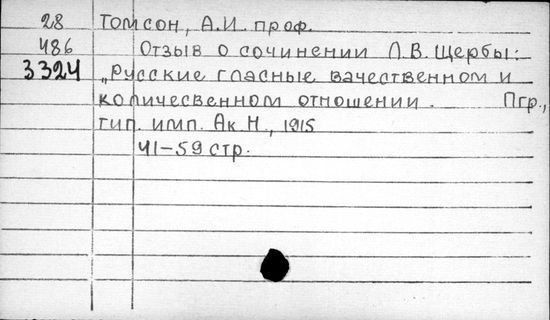 28 Томсон, А.И. проф.
486 Отзыв о сочинении Л.В. Щербы:
3324 „Русские гласные вачественном и
количесвенном отношении. Пгр.,
тип. имп. Ак.Н., 1915
41-59 стр.